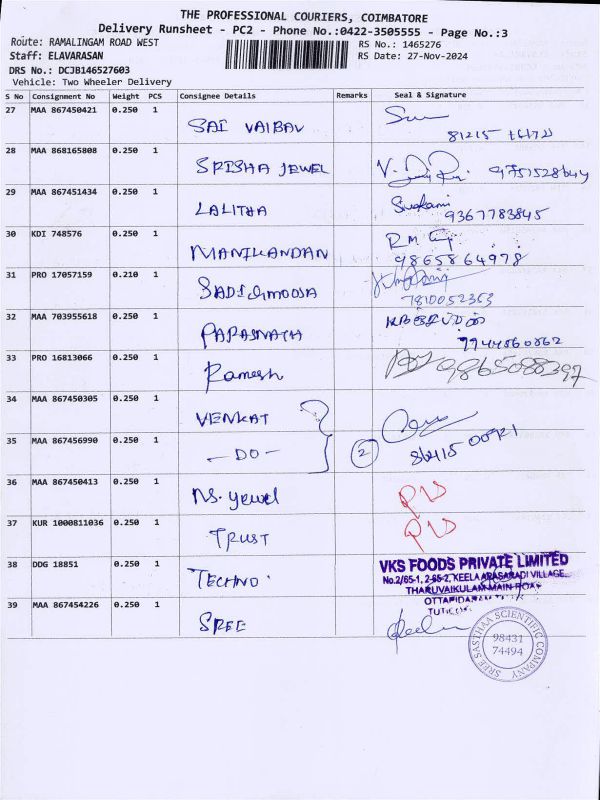 THE PROFESSIONAL COURIERS, COIMBATORE
Delivery Runsheet - PC2 - Phone No.:0422-3505555 - Page No.:3
Route: RAMALINGAM ROAD WEST
RS No.: 1465276
Staff: ELAVARASAN
RS Date: 27-Nov-2024
DRS No.: DCJB146527603
Vehicle: Two Wheeler Delivery
S No Consignment No Weight PCS Consignee Details Remarks Seal & Signature
27 MAA 867450421 0.250 1 SAI VAIBAV
81215
28 MAA 868165808 0.250 1 SRISHA JEWEL
29 MAA 867451434 0.250 1 LALITHA
9367783845
30 KDI 748576 0.250 1 MANIKANDAN
9865864978
31 PRO 17057159 0.210 1
7810052363
32 MAA 703955618 0.250 1 PARASNATH
7744560862
33 PRO 16813066 0.250 1 Ramesh
9865088397
34 MAA 867450305 0.250 1 VENKAT
35 MAA 867456990 0.250 1 -DO- 2
36 MAA 867450413 0.250 1 NS. Jewel
37 KUR 1000811036 0.250 1 TRUST
38 DDG 18851 0.250 1 TECHNO
VKS FOODS PRIVATE LIMITED
No.2/65-1, 2-65-2, KEELA ARASARADI VILLAGE
THARUVAIKULAM MAIN ROAD
39 MAA 867454226 0.250 1 SREE
SREE SASTHAA SCIENTIFIC COMPANY
98431
74494